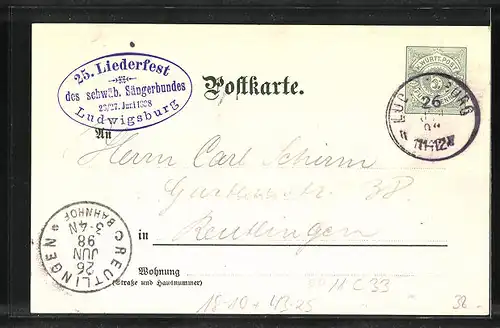 25. Liederfest
des schwäb. Sängerbundes
26/27. Juni 1898
Ludwigsburg
Postkarte.
K. WÜRTT. POST
LUDWIGSBURG
26
An
Herrn Carl Schirm
Gartenstr. 38.
in Reutlingen
REUTLINGEN
BAHNHOF
3-4N
26
JUN
98
Wohnung
(Straße und Hausnummer)
11 C 33